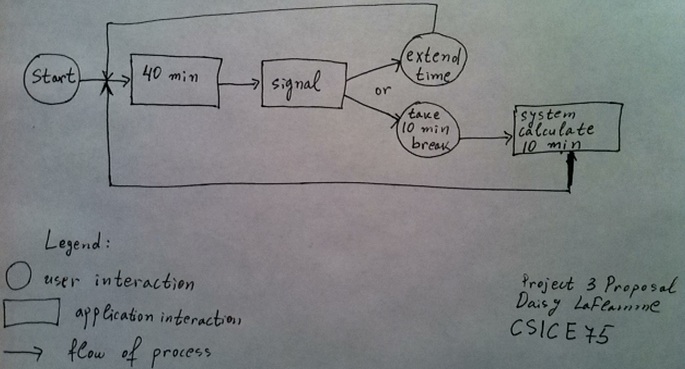 start
40 min
signal
extend
time
or
take
10 min
break
system
calculate
10 min
Legend:
user interaction
application interaction
flow of process
Project 3 Proposal
Daisy LaFlamme
CSICE 75